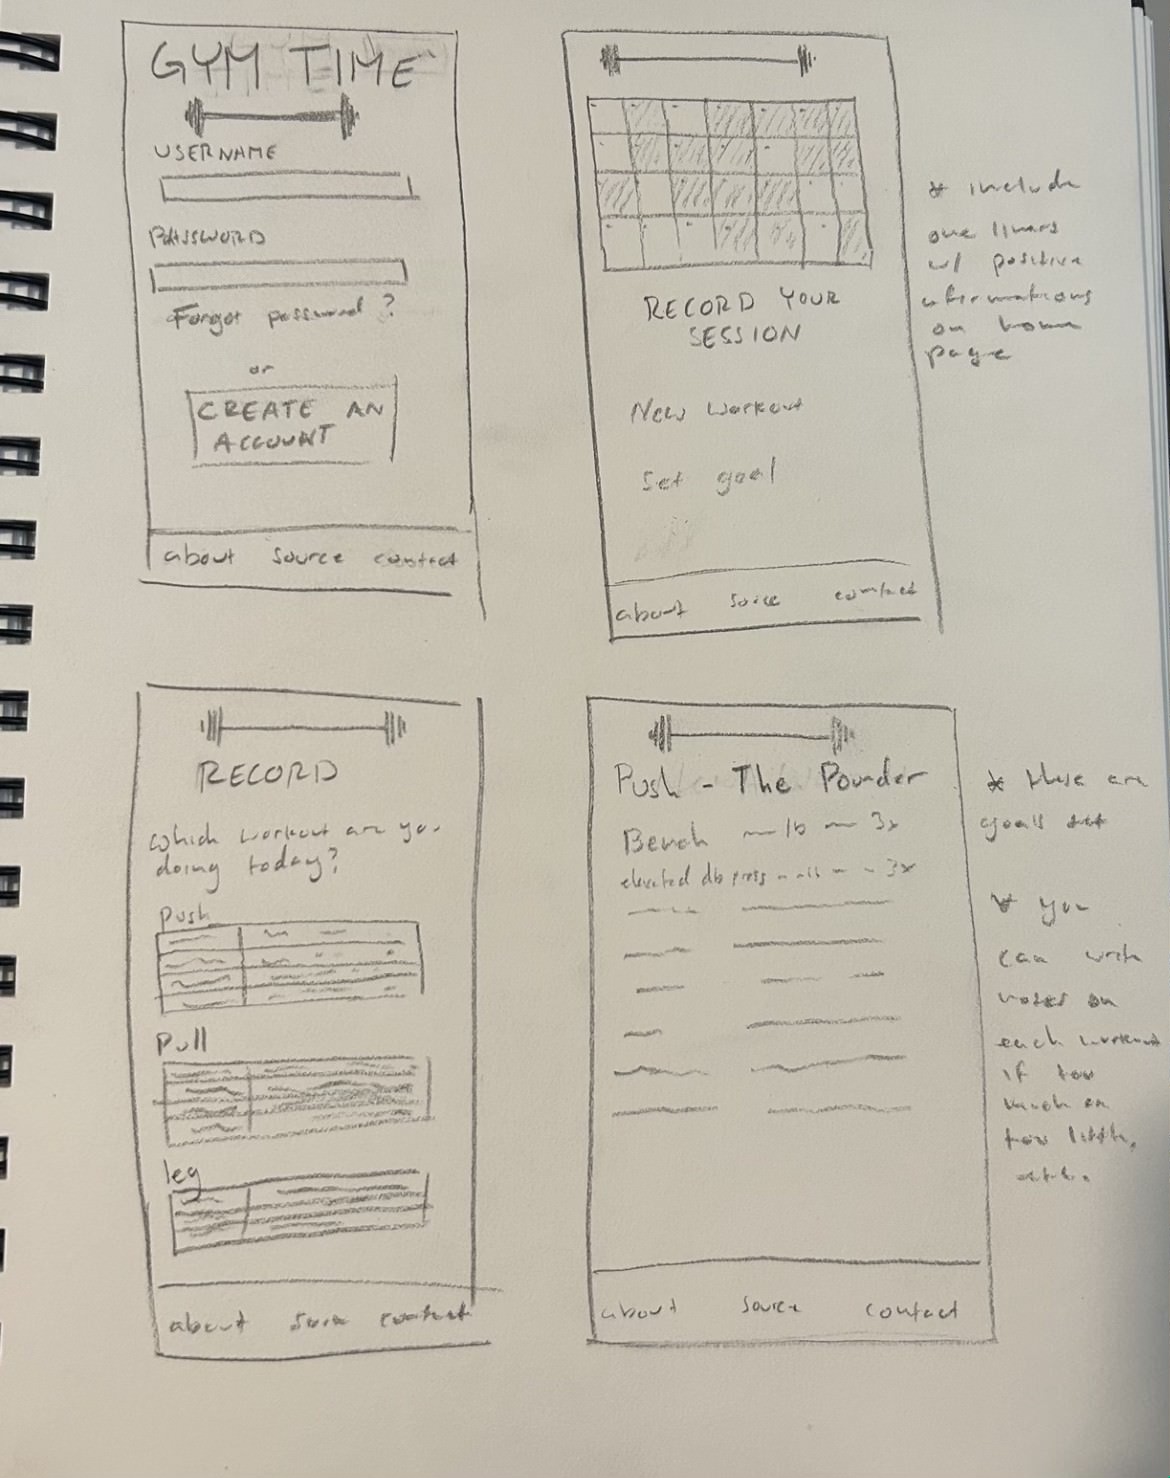 GYM TIME
USERNAME
PASSWORD
Forgot password?
or
CREATE AN
ACCOUNT
about source contact
RECORD YOUR
SESSION
New workout
Set goal
about source contact
* include
one liners
w/ positive
afirmations
on home
page
RECORD
which workout are you
doing today?
Push
Pull
leg
about source contact
Push - The Pounder
Bench lb 3x
elevated db press 3x
about source contact
* these are
goals set
* you
can write
notes on
each workout
if too
much or
too little,